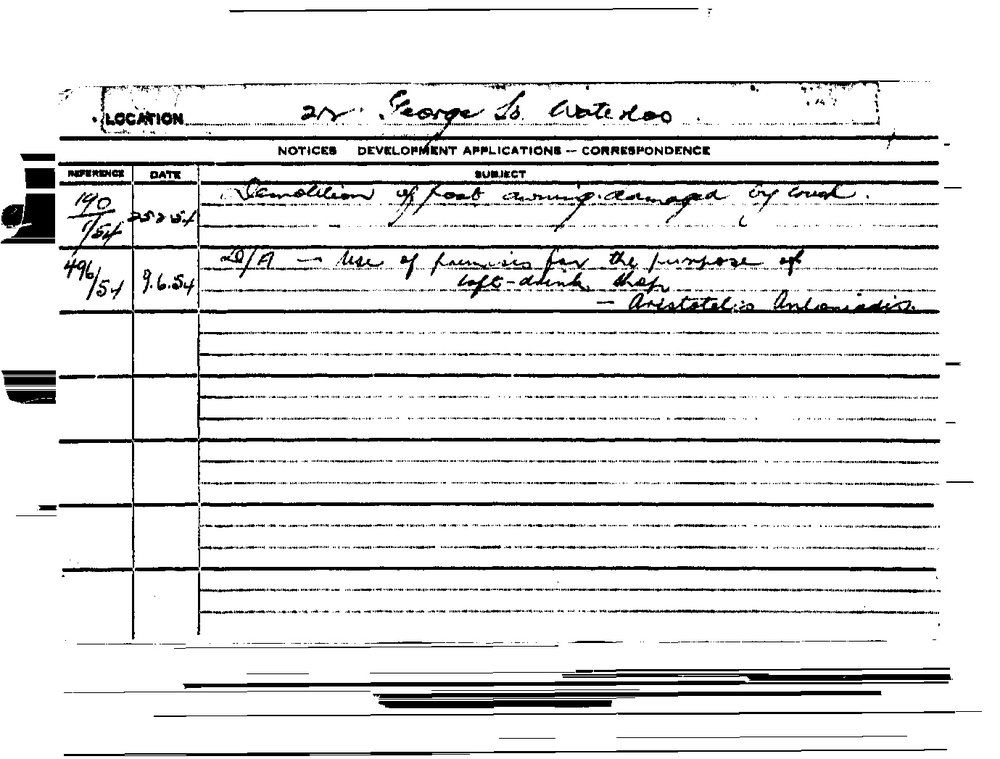 LOCATION 22 George St. Waterloo
NOTICES DEVELOPMENT APPLICATIONS — CORRESPONDENCE
REFERENCE DATE SUBJECT
190/1/54 25 2 54 Demolition of post awning damaged by truck.
496/54 9.6.54 D/A — Use of premises for the purpose of
soft-drink shop
— Aristotelis Antoniadis.